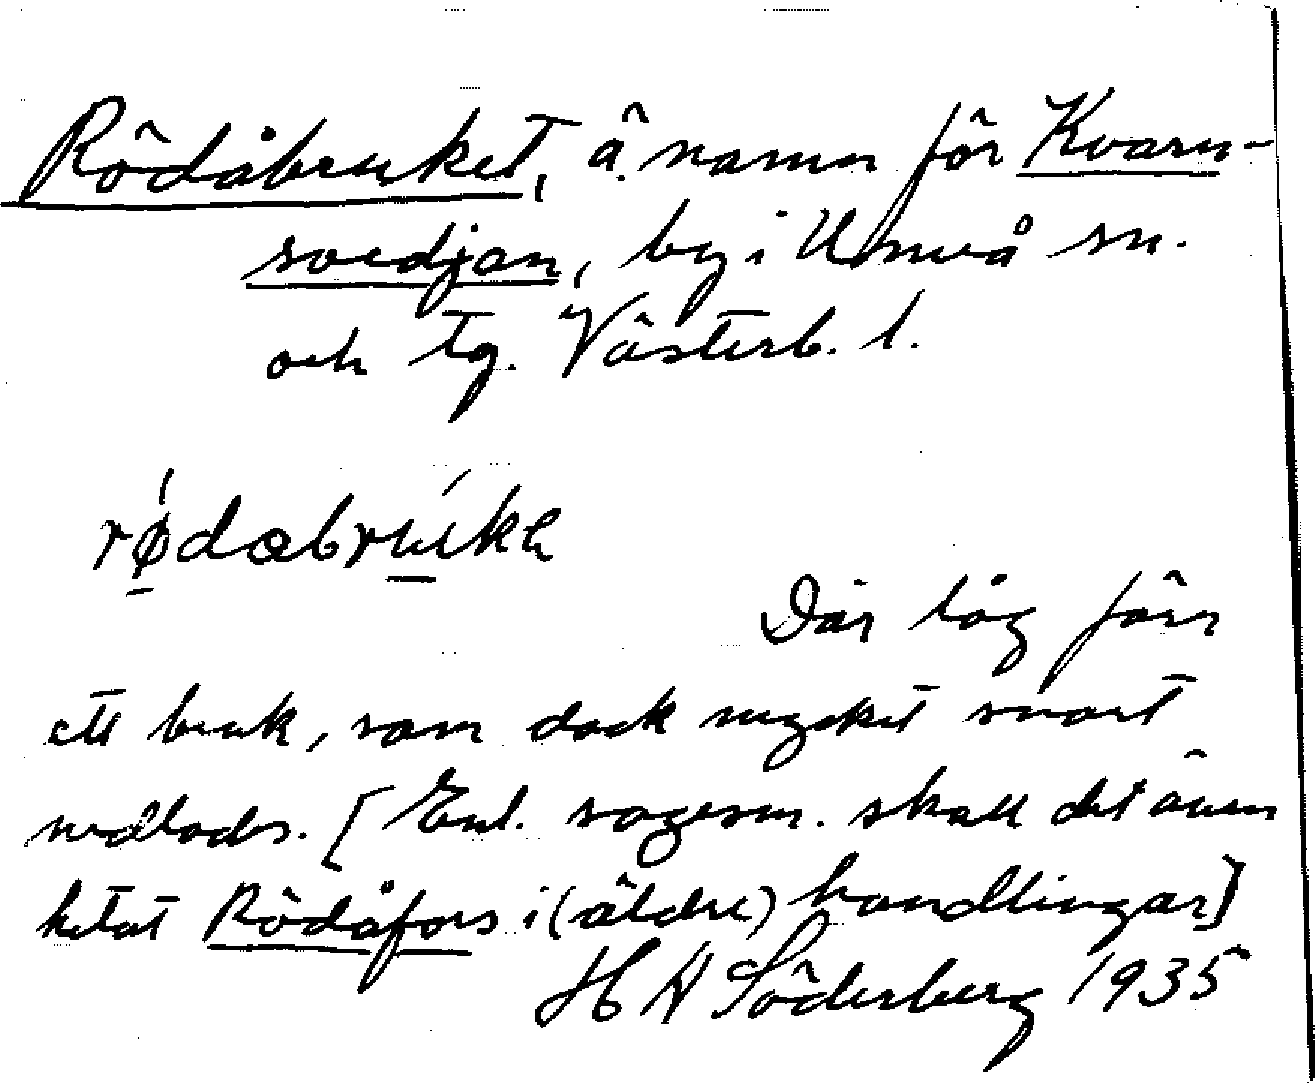 Rödåbruket, ä. namn för Kvarn-
svedjan, by i Umeå sn.
och tg. Västerb. l.
rǿdabrúke
Där låg förr
ett bruk, som dock mycket snart
nedlades. [Enl. sagesm. skall det även
hetat Rödåfors i (äldre) handlingar]
H A Söderberg 1935